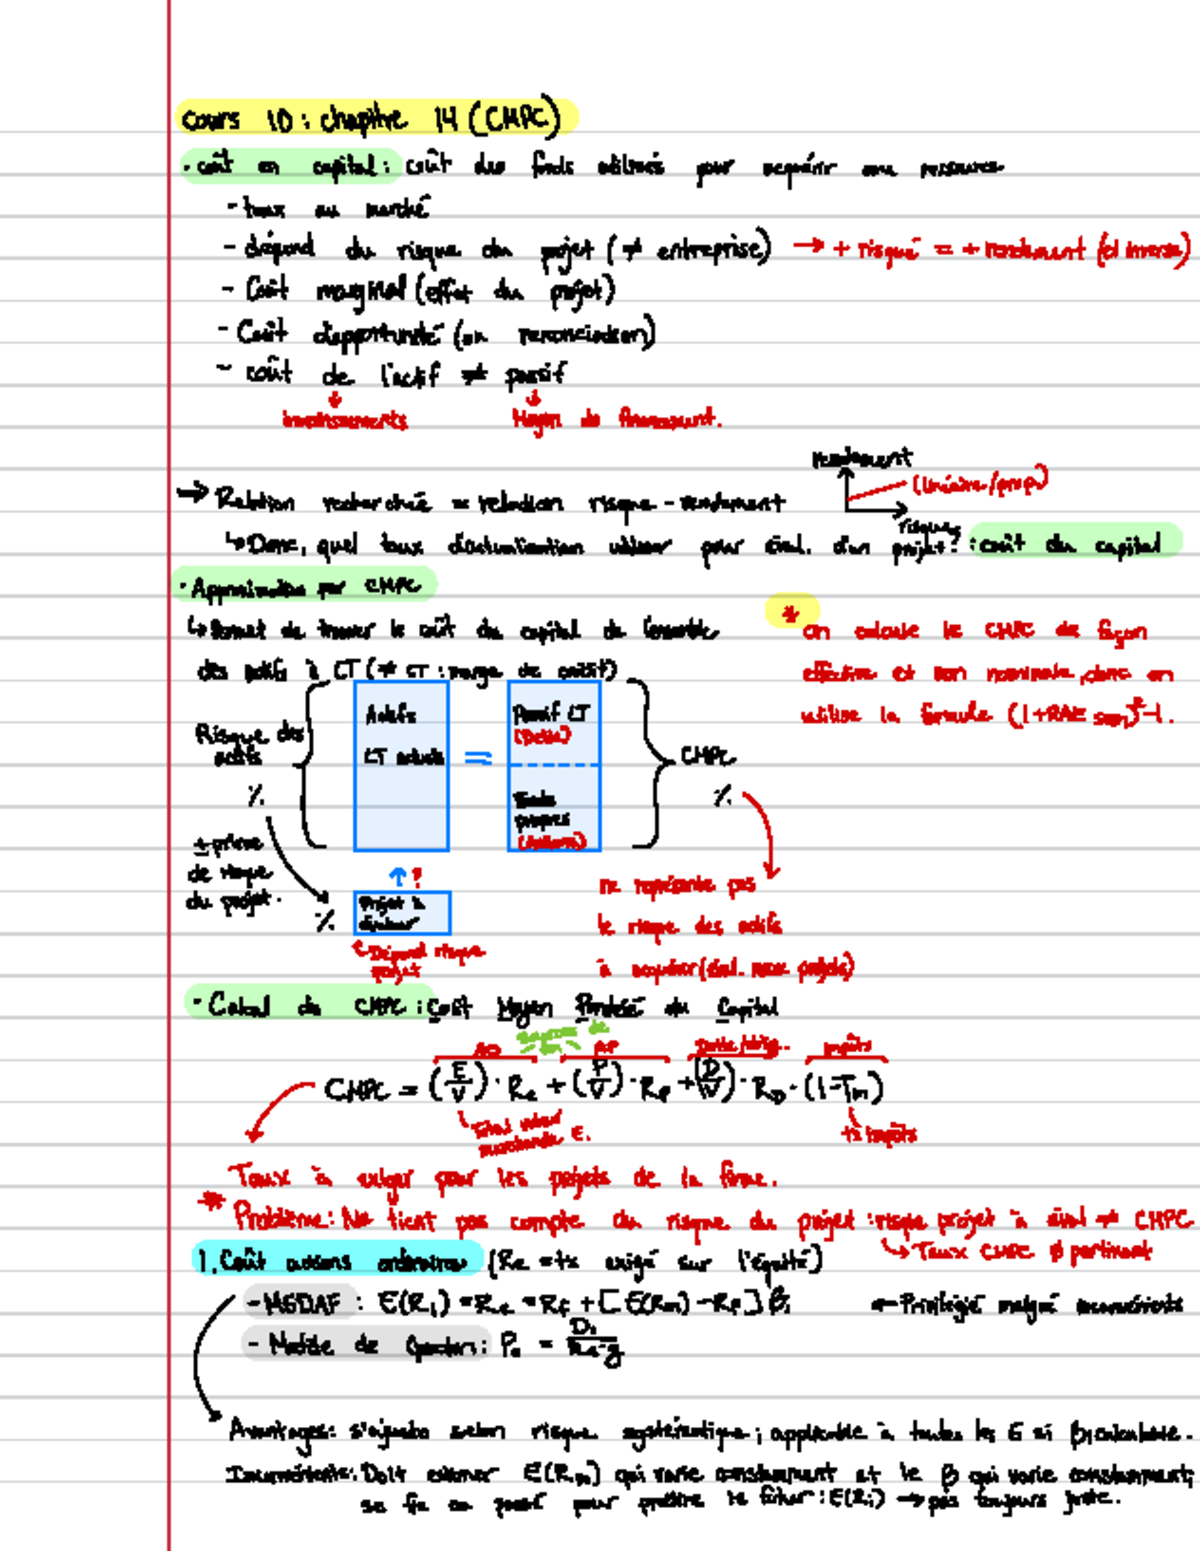 Cours 10 : chapitre 14 (CMPC)
· coût en capital : coût des fonds utilisés pour acquérir une ressource
- taux au marché
- dépend du risque du projet (≠ entreprise) → + risqué = + rendement (et inverse)
- Coût marginal (effet du projet)
- Coût d'opportunité (ou renonciation)
- coût de l'actif ≠ passif
investissements
Moyen de financement.
rendement
(linéaire/prop.)
→ Relation recherchée = relation risque - rendement
risque
↳ Donc, quel taux d'actualisation utiliser pour éval. d'un projet? : coût du capital
· Approximation par CMPC
↳ Permet de trouver le coût du capital de l'ensemble
des actifs à CT (≠ CT : marge de crédit)
* On calcule le CMPC de façon
effective et non nominale, donc on
utilise la formule (1+RAE sem)²-1.
Risque des
actifs
%
Actifs
CT actuels
=
Passif CT
(Dette)
Fonds
propres
(Actions)
CMPC
%
+ prime
de risque
du projet.
%
↑ ?
Projet à
évaluer
Dépend risque
projet
ne représente pas
le risque des actifs
à acquérir (éval. nouv. projets)
· Calcul du CMPC : Coût Moyen Pondéré du Capital
AO
AP
Dette/oblig.
Impôts
CMPC = (E/V) · Re + (P/V) · Rp + (D/V) · RD · (1-Tm)
Total valeur
marchande E.
tx impôts
Taux à exiger pour les projets de la firme.
* Problème : Ne tient pas compte du risque du projet : risque projet à éval ≠ CMPC
↳ Taux CMPC ∅ pertinent
1. Coût actions ordinaires (Re = tx exigé sur l'équité)
- MEDAF : E(Ri) = Re = Rf + [E(Rm) - Rf] βi
← Privilégié malgré inconvénients
- Modèle de Gordon : P0 = D1/Re-g
Avantages : s'ajuste selon risque systématique ; applicable à toutes les E si β calculable.
Inconvénients : Doit estimer E(Rm) qui varie constamment et le β qui varie constamment;
se fie au passé pour prédire le futur : E(Ri) → pas toujours juste.